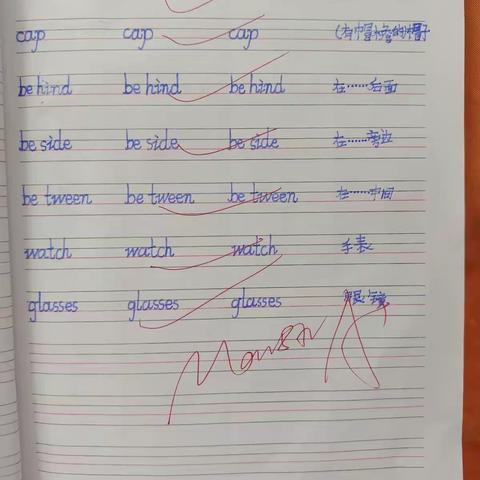 cap cap cap (有帽檐的)帽子
be hind be hind be hind 在……后面
be side be side be side 在……旁边
be tween be tween be tween 在……中间
watch watch watch 手表
glasses glasses glasses 眼镜